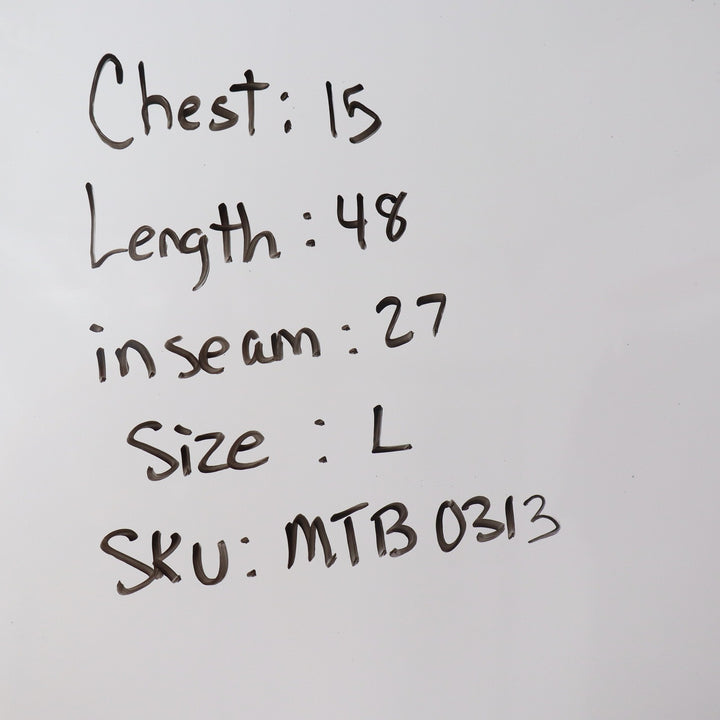 Chest: 15
Length: 48
inseam: 27
Size: L
SKU: MTB0313